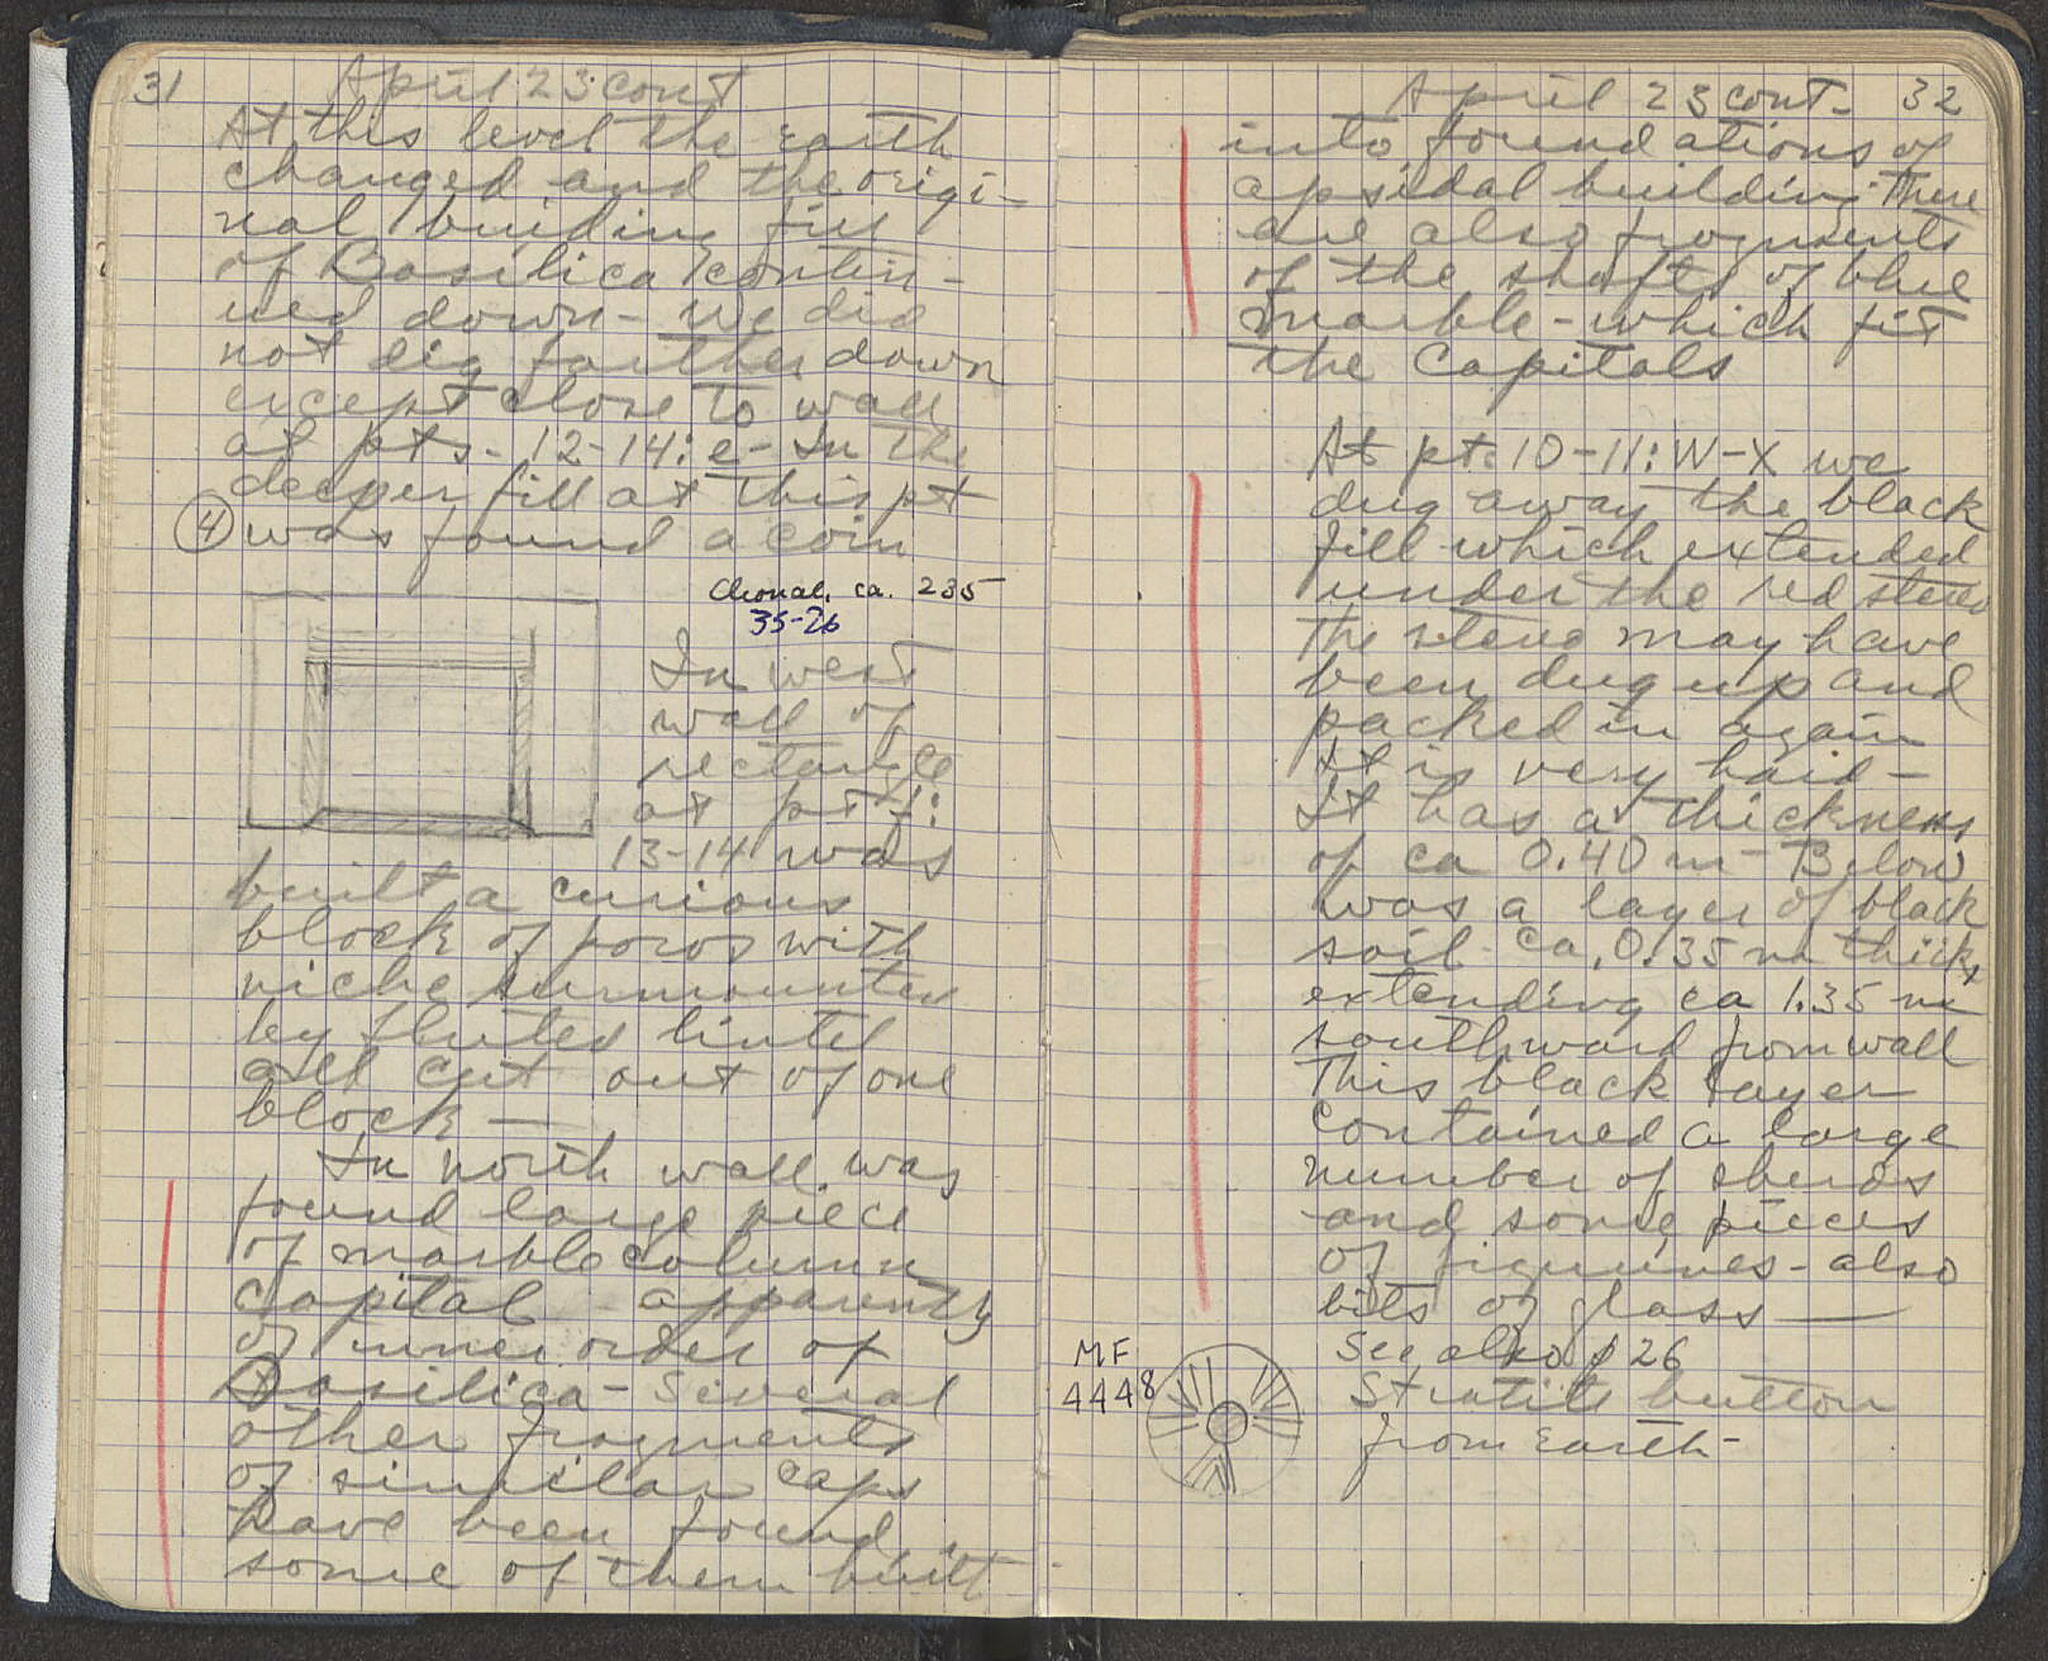 31 April 23 cont
At this level the earth
changed and the origi-
nal building fill
of Basilica contin-
ued down - we did
not dig farther down
except close to wall
at pts. 12-14: e - In the
deeper fill at this pt
④ was found a coin
ca. 235
35-26
In west
wall of
rectangle
at pt f:
13-14 was
built a curious
block of poros with
niche surmounted
by fluted lintel
all cut out of one
block —
In north wall was
found large piece
of marble column
capital - apparently
of inner order of
Basilica - several
other fragments
of similar caps
have been found
some of them built
April 23 cont - 32
into foundations of
apsidal building. There
are also fragments
of the shafts of blue
marble - which fit
the capitals
At pt. 10-11: W-X we
dug away the black
fill which extended
under the red stereo
The stereo may have
been dug up and
packed in again
It is very hard -
It has a thickness
of ca 0.40 m - Below
was a layer of black
soil ca. 0.35 m thick,
extending ca 1.35 m
southward from wall
This black layer
contained a large
number of sherds
and some pieces
of figurines - also
bits of glass —
See also p 26
MF
4448
button
from earth -